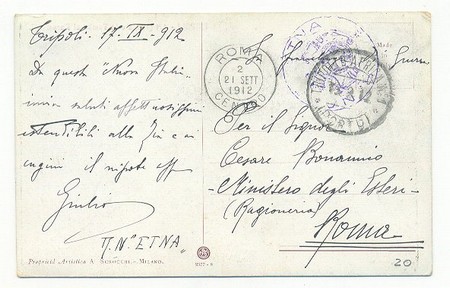 Tripoli 17-IX-912
Da questa "Nuova Italia"
invia saluti affettuosissimi
estensibili alla Zia e ai
cugini il nipote aff
Giulio
R. N. "ETNA"
Proprietà Artistica A. - MILANO.
ROMA
2
21 SETT
1912
CENTRO
ETNA
Per il Signor
Cesare Bonamio
Ministero degli Esteri-
(Ragioneria)
Roma
20